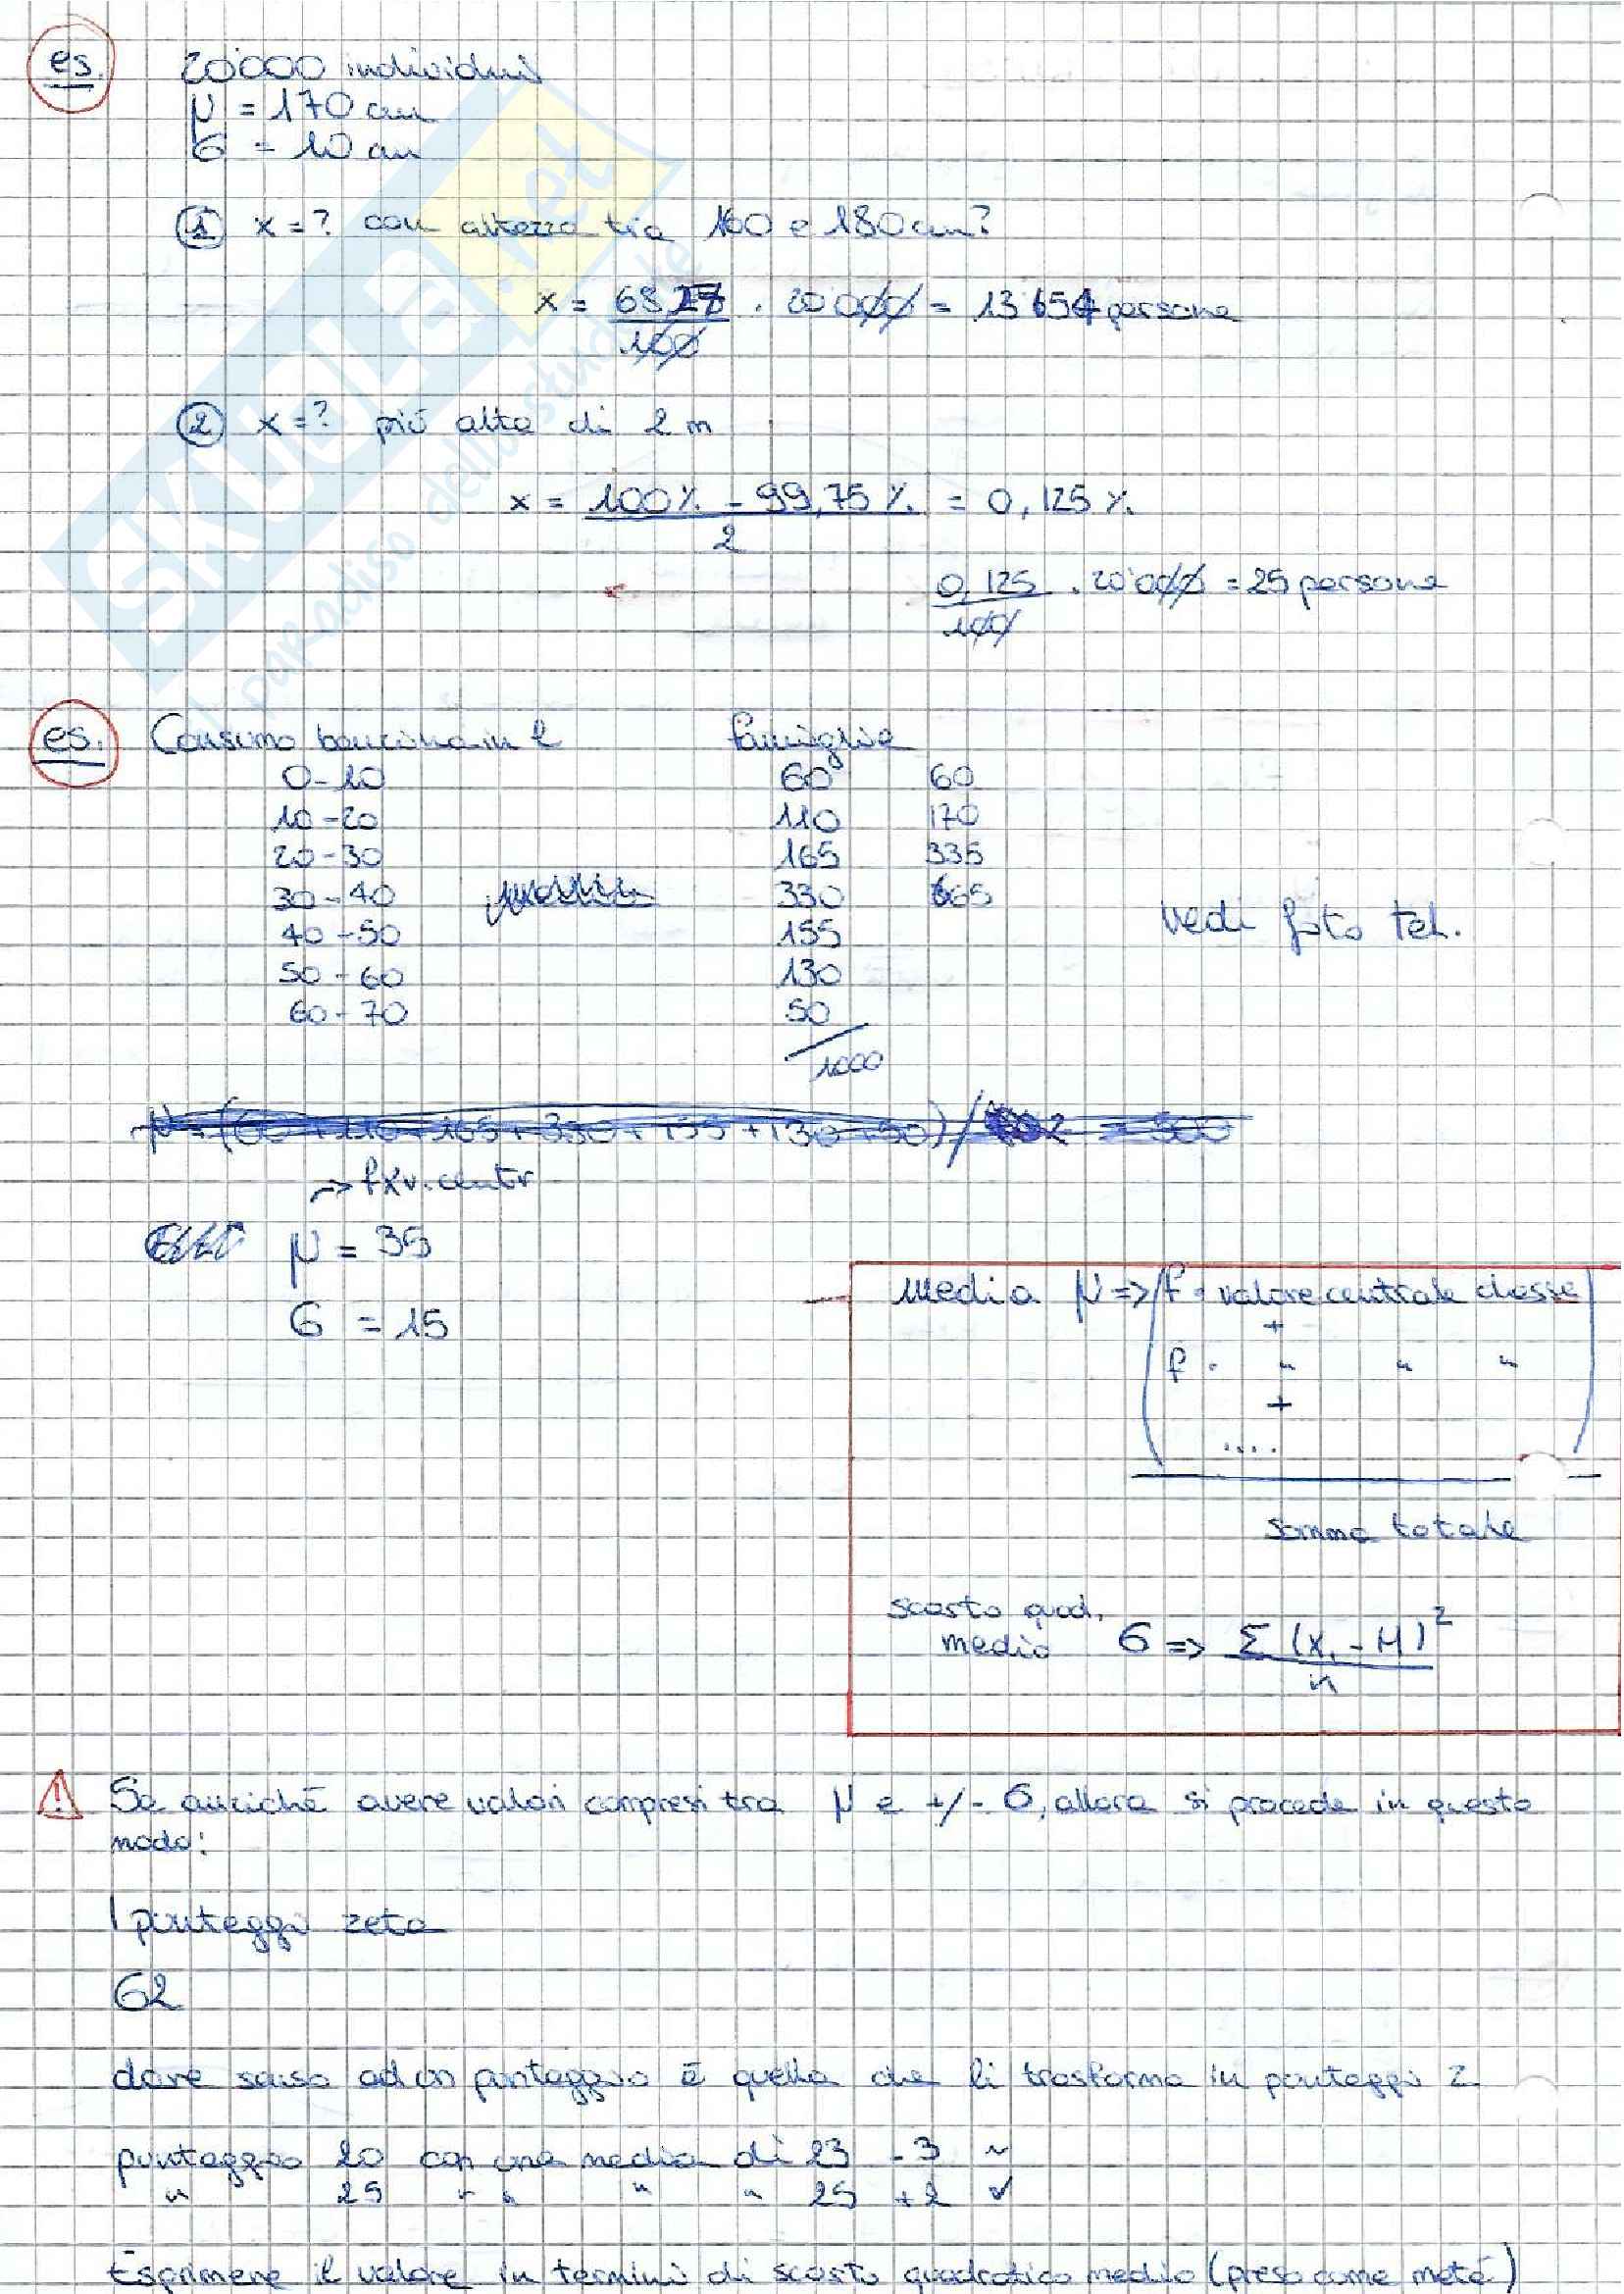 es. 20'000 individui
μ = 170 cm
σ = 10 cm
1 x = ? con altezza tra 160 e 180 cm?
x = 68,27 / 100 · 20 000 = 13 654 persone
2 x = ? più alte di 2 m
x = 100% - 99,75% / 2 = 0,125%
0,125 / 100 · 20'000 = 25 persone
es. Consumo benzina in l famiglie
0-10 60 60
10-20 110 170
20-30 165 335
30-40 330 665
40-50 155
50-60 130
60-70 50
1000
vedi foto tel.
μ = (60 + 110 + 165 + 330 + 155 + 130 + 50) / = 500
→ f x v. centr
μ = 35
σ = 15
media μ => (f · valore centrale classe
+
f · " " "
+
....)
somma totale
scosto quad.
medio σ => Σ (xi - M)² / n
! Se anziché avere valori compresi tra μ e +/- σ, allora si procede in questo
modo:
I punteggi zeta
62
dare senso ad un punteggio è quella che li trasforma in punteggi z
punteggio 20 con una media di 23 - 3 ~
" 25 " " " " 25 + 2 ✓
Esprimere il valore in termini di scosto quadratico medio (preso come metà)
SKUOLA.net
il paradiso dello studente